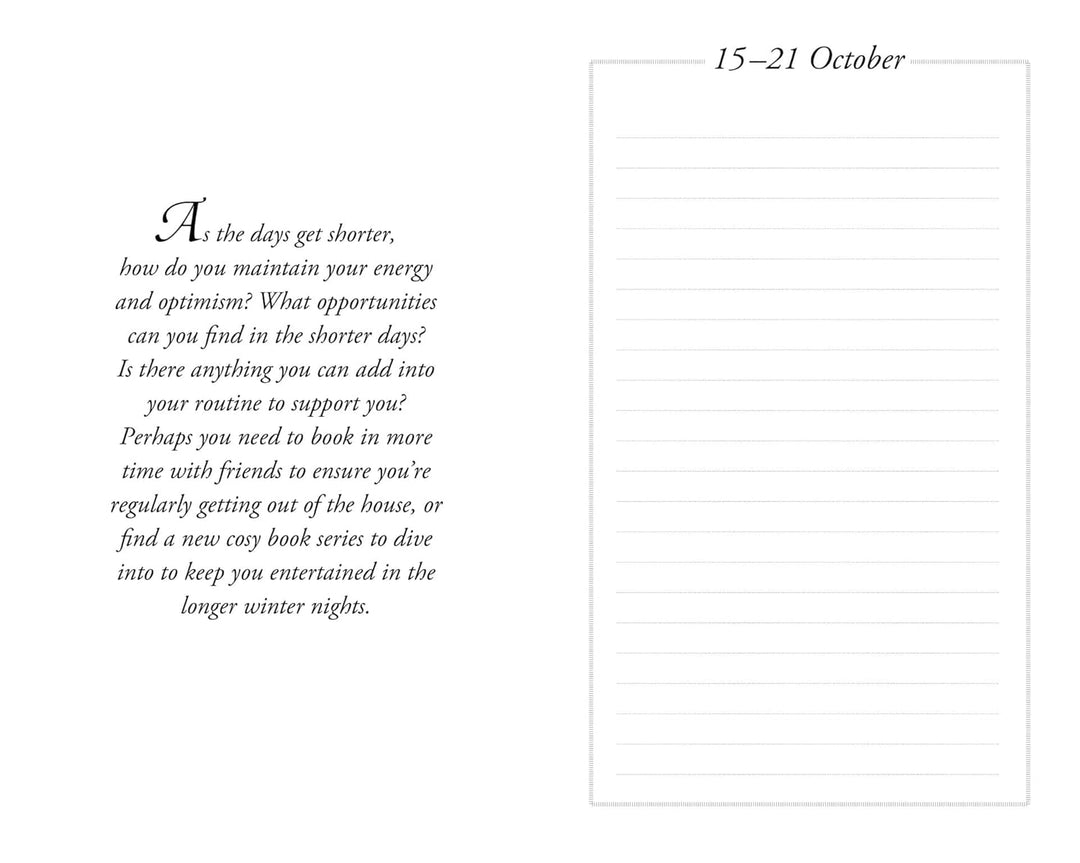 As the days get shorter,
how do you maintain your energy
and optimism? What opportunities
can you find in the shorter days?
Is there anything you can add into
your routine to support you?
Perhaps you need to book in more
time with friends to ensure you’re
regularly getting out of the house, or
find a new cosy book series to dive
into to keep you entertained in the
longer winter nights.
15–21 October